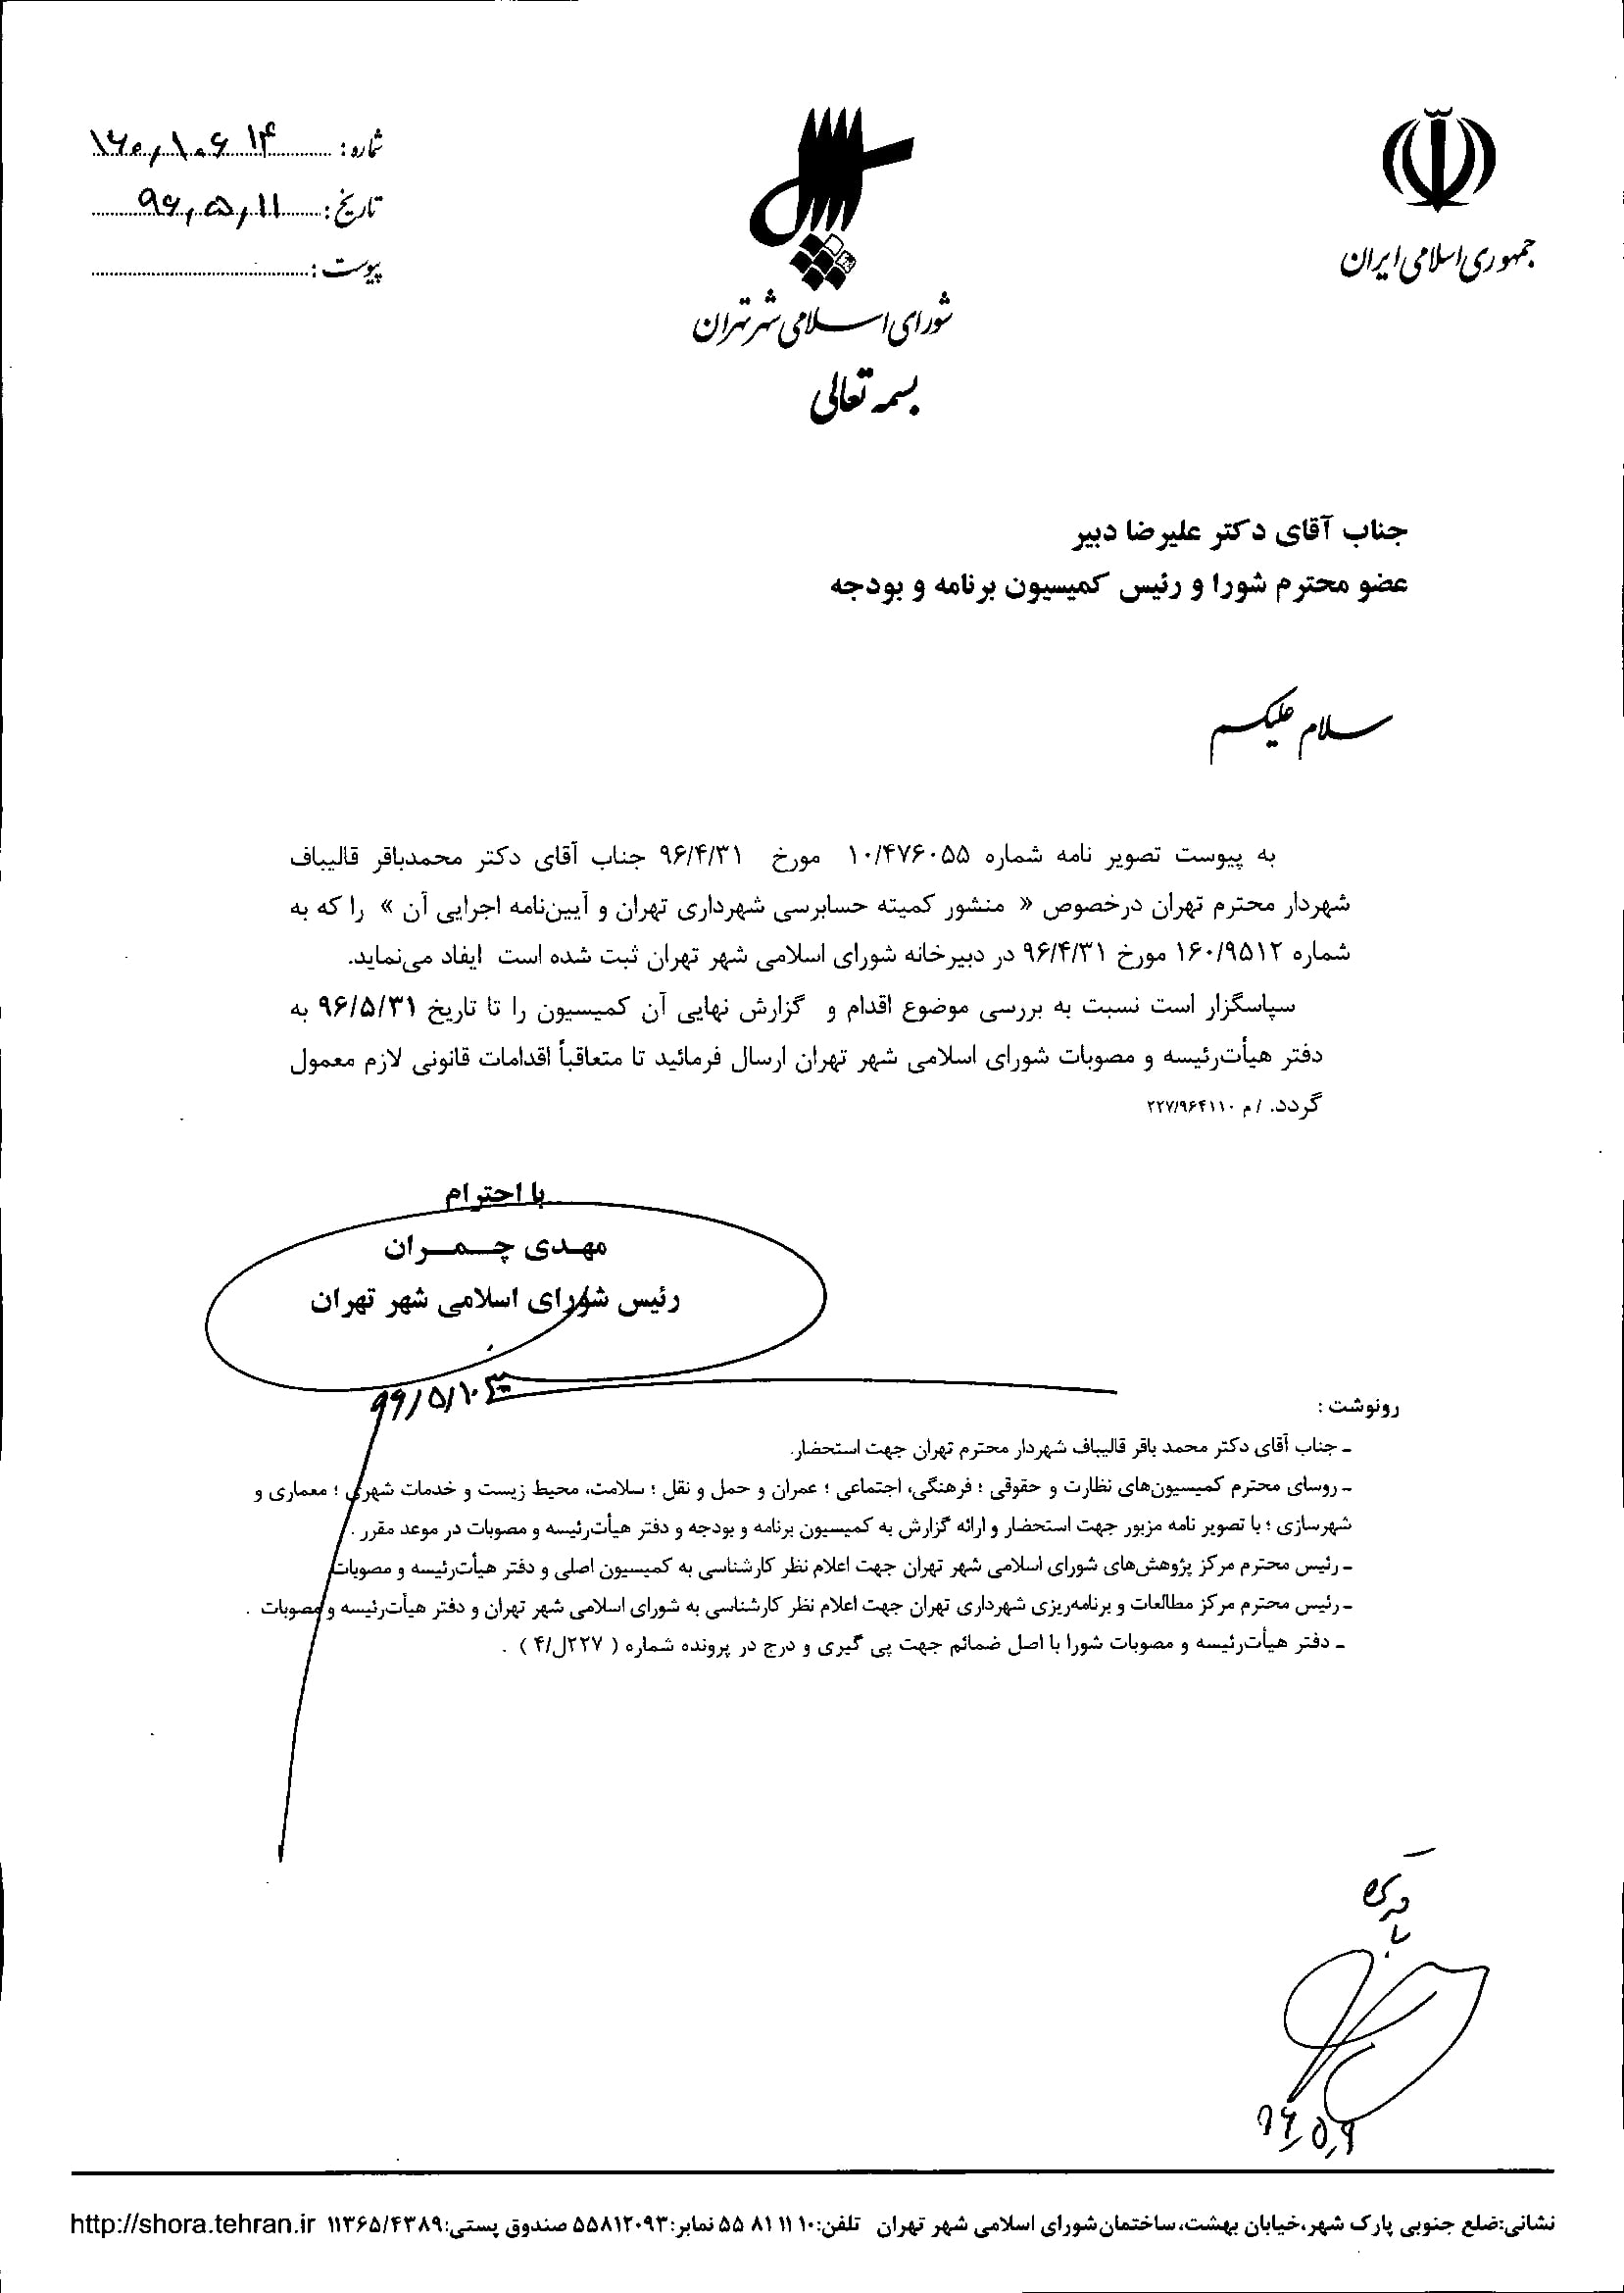 جمهوری اسلامی ایران
شورای اسلامی شهر تهران
بسمه تعالی
شماره: ۱۶۰/۱۰۶۱۴
تاریخ: ۹۶/۵/۱۱
پیوست:
جناب آقای دکتر علیرضا دبیر
عضو محترم شورا و رئیس کمیسیون برنامه و بودجه
سلام علیکم
به پیوست تصویر نامه شماره ۱۰/۴۷۶۰۵۵ مورخ ۹۶/۴/۳۱ جناب آقای دکتر محمدباقر قالیباف
شهردار محترم تهران درخصوص « منشور کمیته حسابرسی شهرداری تهران و آیین‌نامه اجرایی آن » را که به
شماره ۱۶۰/۹۵۱۲ مورخ ۹۶/۴/۳۱ در دبیرخانه شورای اسلامی شهر تهران ثبت شده است ایفاد می‌نماید.
سپاسگزار است نسبت به بررسی موضوع اقدام و گزارش نهایی آن کمیسیون را تا تاریخ ۹۶/۵/۳۱ به
دفتر هیأت‌رئیسه و مصوبات شورای اسلامی شهر تهران ارسال فرمائید تا متعاقباً اقدامات قانونی لازم معمول
گردد. / م ۲۲۷/۹۶۴۱۱۰
با احترام
مهدی چمران
رئیس شورای اسلامی شهر تهران
۹۶/۵/۱۰
رونوشت :
ـ جناب آقای دکتر محمد باقر قالیباف شهردار محترم تهران جهت استحضار.
ـ روسای محترم کمیسیون‌های نظارت و حقوقی ؛ فرهنگی، اجتماعی ؛ عمران و حمل و نقل ؛ سلامت، محیط زیست و خدمات شهری ؛ معماری و
شهرسازی ؛ با تصویر نامه مزبور جهت استحضار و ارائه گزارش به کمیسیون برنامه و بودجه و دفتر هیأت‌رئیسه و مصوبات در موعد مقرر .
ـ رئیس محترم مرکز پژوهش‌های شورای اسلامی شهر تهران جهت اعلام نظر کارشناسی به کمیسیون اصلی و دفتر هیأت‌رئیسه و مصوبات
ـ رئیس محترم مرکز مطالعات و برنامه‌ریزی شهرداری تهران جهت اعلام نظر کارشناسی به شورای اسلامی شهر تهران و دفتر هیأت‌رئیسه و مصوبات .
ـ دفتر هیأت‌رئیسه و مصوبات شورا با اصل ضمائم جهت پی گیری و درج در پرونده شماره ( ۲۲۷ل/۴ ) .
نشانی:ضلع جنوبی پارک شهر،خیابان بهشت،ساختمان شورای اسلامی شهر تهران تلفن:۱۰ ۱۱ ۸۱ ۵۵ نمابر:۵۵۸۱۲۰۹۳ صندوق پستی:۱۱۳۶۵/۴۳۸۹ http://shora.tehran.ir